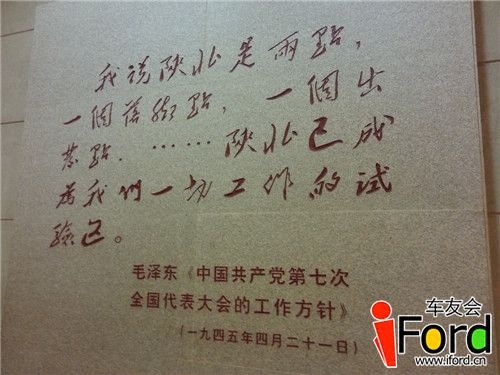 我说陕北是两點，
一個落腳點，一個出
發點．……陕北已成
為我們一切工作的試
驗区。
毛泽东《中国共产党第七次
全国代表大会的工作方针》
(一九四五年四月二十一日)
车友会
iFord
www.iford.cn